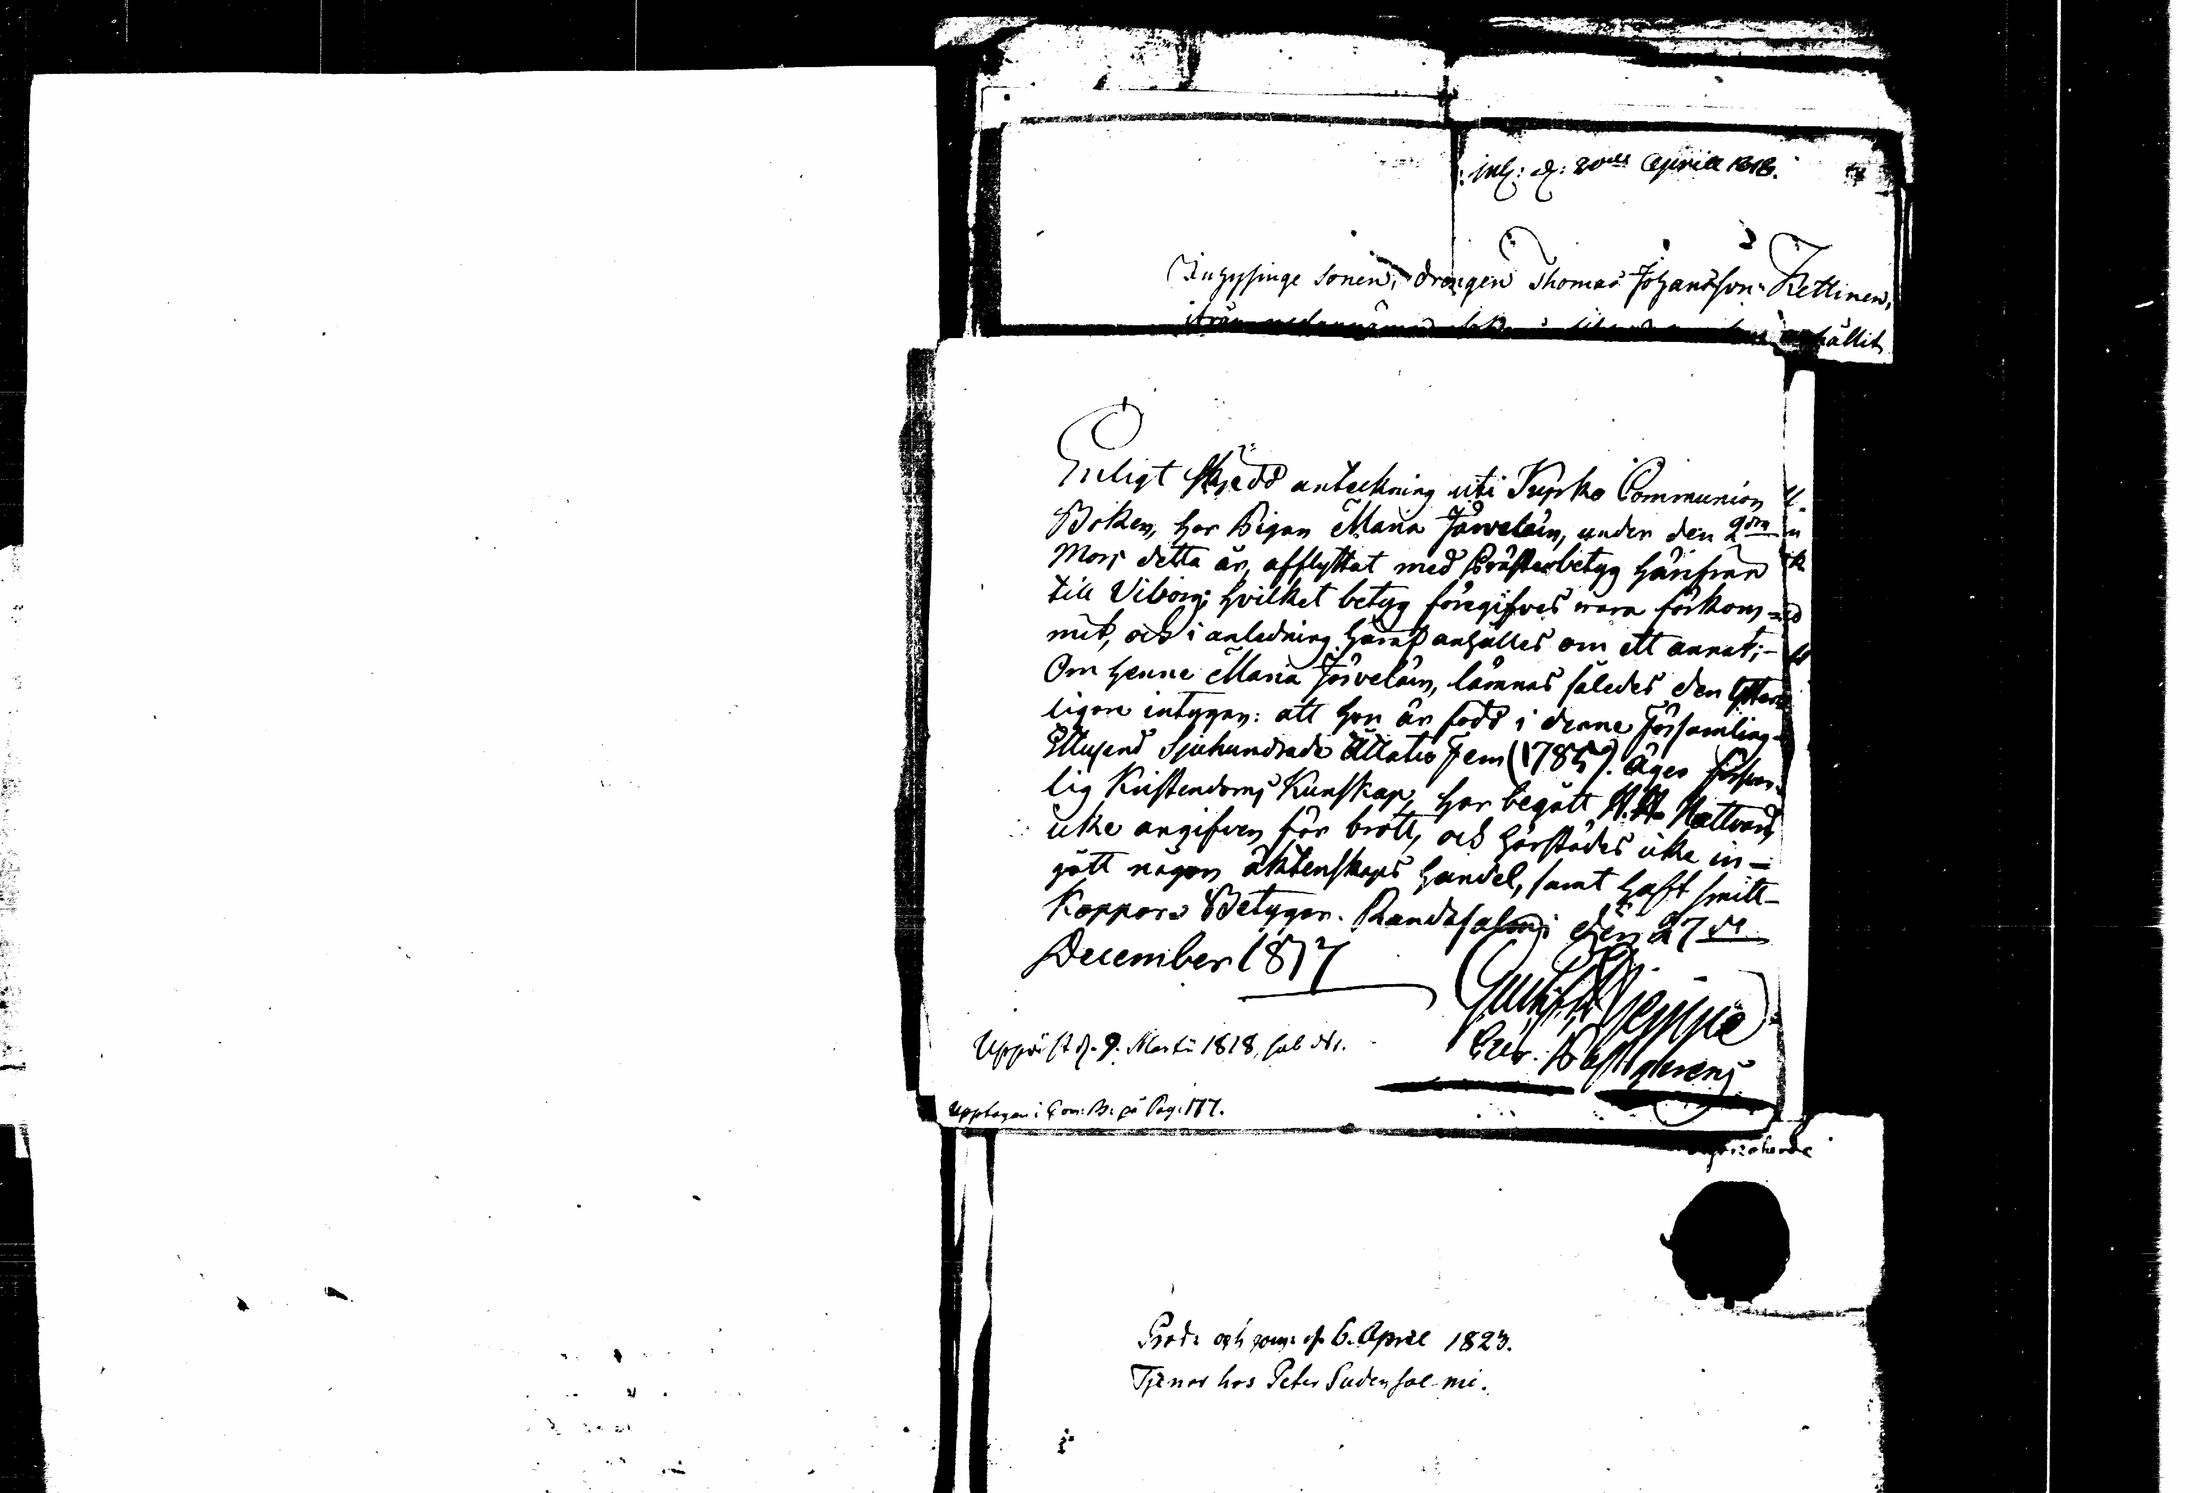 April 1818.
Inhysinge Sonen, drängen Thomas Johansson Kettinen,
hållit
Enligt skjedd anteckning uti Kyrko Communion
Boken, har Pigan Maria Järveläin, under den 2dra
Mars detta år, afflyttat med Prästerbetyg härifrån
till Viborg; hvilket betyg föregifves vara förkom-
mit, och i anledning häraf anhålles om ett annat;-
Om henne Maria Järveläin, lämnas således den ytter
ligare intygan: att hon är född i denna församling
Ettusend Sjuhundrade Åttatio Fem (1785). Äger försvar-
lig Kristendoms Kunskap, har begått H. H. Nattvard,
icke angifven för brott, och härstädes icke in-
gått någon äktenskaps handel, samt haft smitt-
Koppor. Betygar. Randasalmi den 27de
December 1817
Uppvist d. 9. Martii 1818, sub N1.
Upptagen i Com: B: på Pag: 177.
April 1823.
Tjenar hos Peter Sudensalmi.